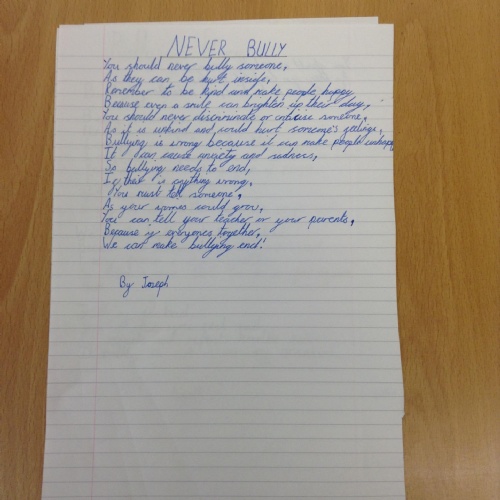 NEVER BULLY
You should never bully someone,
As they can be hurt inside,
Remember to be kind and make people happy
Because even a smile can brighten up their day,
You should never discriminate or criticise someone,
As it is unkind and could hurt someone's feelings,
Bullying is wrong because it can make people unhappy
It can cause anxiety and sadness,
So bullying needs to end,
If that is anything wrong,
You must tell someone,
As your worries could grow,
You can tell your teacher or your parents,
Because if everyones together,
We can make bullying end!
By Joseph